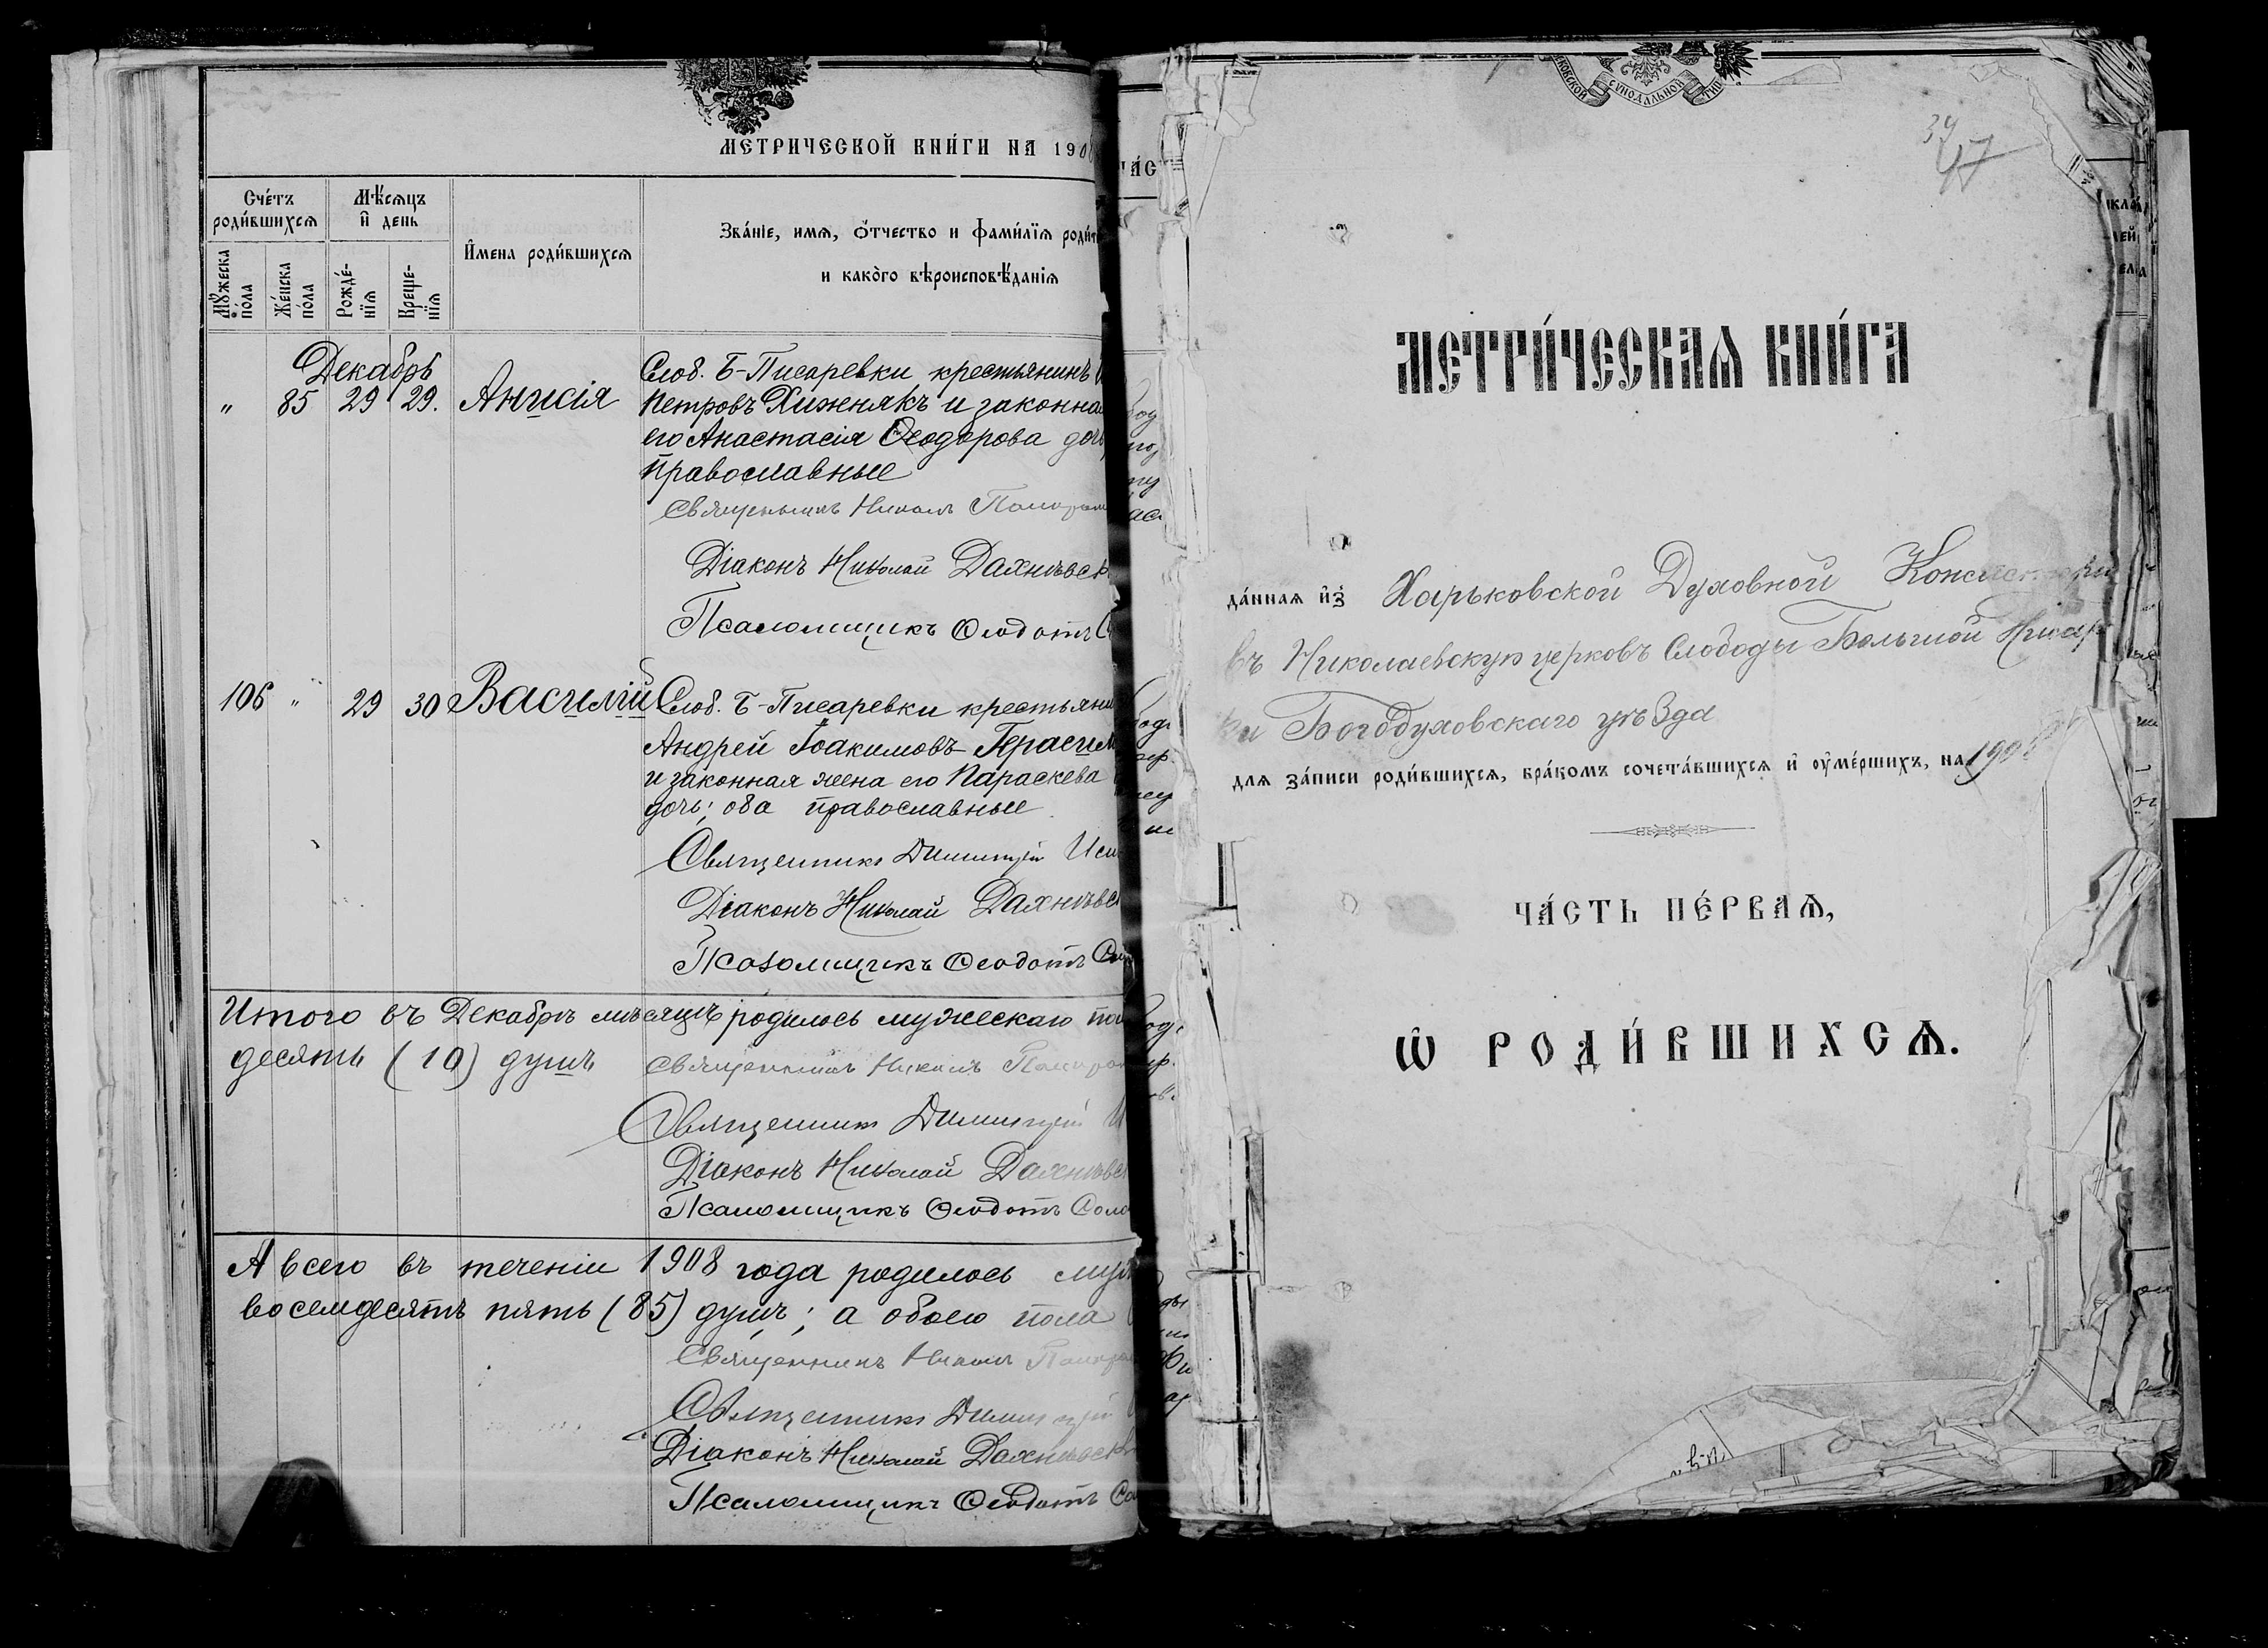 МЕТРИЧЕСКОЙ КНИ́ГИ НА 190
Сче́тъ
роди́вшихсѧ
Мѣ́сѧцъ
и҆ день
И҆мена роди́вшихсѧ
Зва́нїе, имѧ, ѻ҆́тчество и фами́лїѧ
и како́го вѣроисповѣ́данїѧ
Мꙋ́жеска
по́ла
Же́нска
по́ла
Рожде́-
нїѧ
Креще-
нїѧ
Декабрь
" 85 29 29. Анисія
Слоб. Б-Писаревки, крестьянинъ
Петровъ Хижнякъ и законная
его Анастасія Ѳеодорова дочь
православные
Священникъ
Діаконъ Николай
Псаломщикъ Ѳеодотъ
106 " 29 30 Василій
Слоб. Б-Писаревки крестьянинъ
Андрей Іоакимовъ
и законная жена его Параскева
дочь; оба православные
Священникъ Димитрій
Діаконъ Николай
Псаломщикъ Ѳеодотъ
Итого въ Декабрѣ мѣсяцѣ родилось мужескаго
десять (10) душъ
Священникъ
Священникъ Димитрій
Діаконъ Николай
Псаломщикъ Ѳеодотъ
А всего въ теченіи 1908 года родилось
восемдесятъ пять (85) душъ; а обоего пола
Священникъ
Священникъ Димитрій
Діаконъ Николай
Псаломщикъ Ѳеодотъ
СѴНОДАЛЬНОЙ
34
47
МЕТРИ́ЧЕСКАѦ КНИ́ГА
да́ннаѧ и҆з̾ Харьковской Духовной
въ Николаевскую церковь Слободы Большой
Богодуховскаго уѣзда
длѧ за́писи роди́вшихсѧ, бра́комъ сочета́вшихсѧ и҆ оу҆ме́ршихъ, на 190
ЧА́СТЬ ПЕ́РВАѦ,
Ѡ҆ РОДИ́ВШИХСѦ.